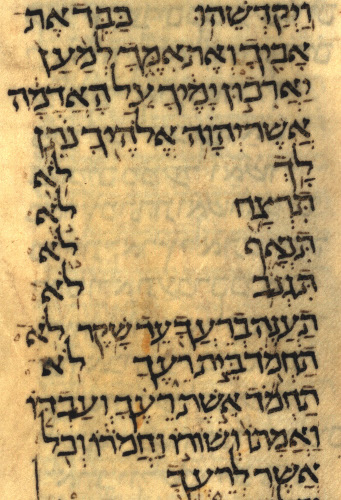 וַיְקַדְּשֵׁהוּ׃ כַּבֵּד אֶת
אָבִיךָ וְאֶת אִמֶּךָ לְמַעַן
יַאֲרִכוּן יָמֶיךָ עַל הָאֲדָמָה
אֲשֶׁר יְהוָה אֱלֹהֶיךָ נֹתֵן
לָךְ׃ לֹא
תִּרְצָח׃ לֹא
תִּנְאָף׃ לֹא
תִּגְנֹב׃ לֹא
תַעֲנֶה בְרֵעֲךָ עֵד שָׁקֶר׃ לֹא
תַחְמֹד בֵּית רֵעֶךָ לֹא
תַחְמֹד אֵשֶׁת רֵעֶךָ וְעַבְדּוֹ
וַאֲמָתוֹ וְשׁוֹרוֹ וַחֲמֹרוֹ וְכֹל
אֲשֶׁר לְרֵעֶךָ׃